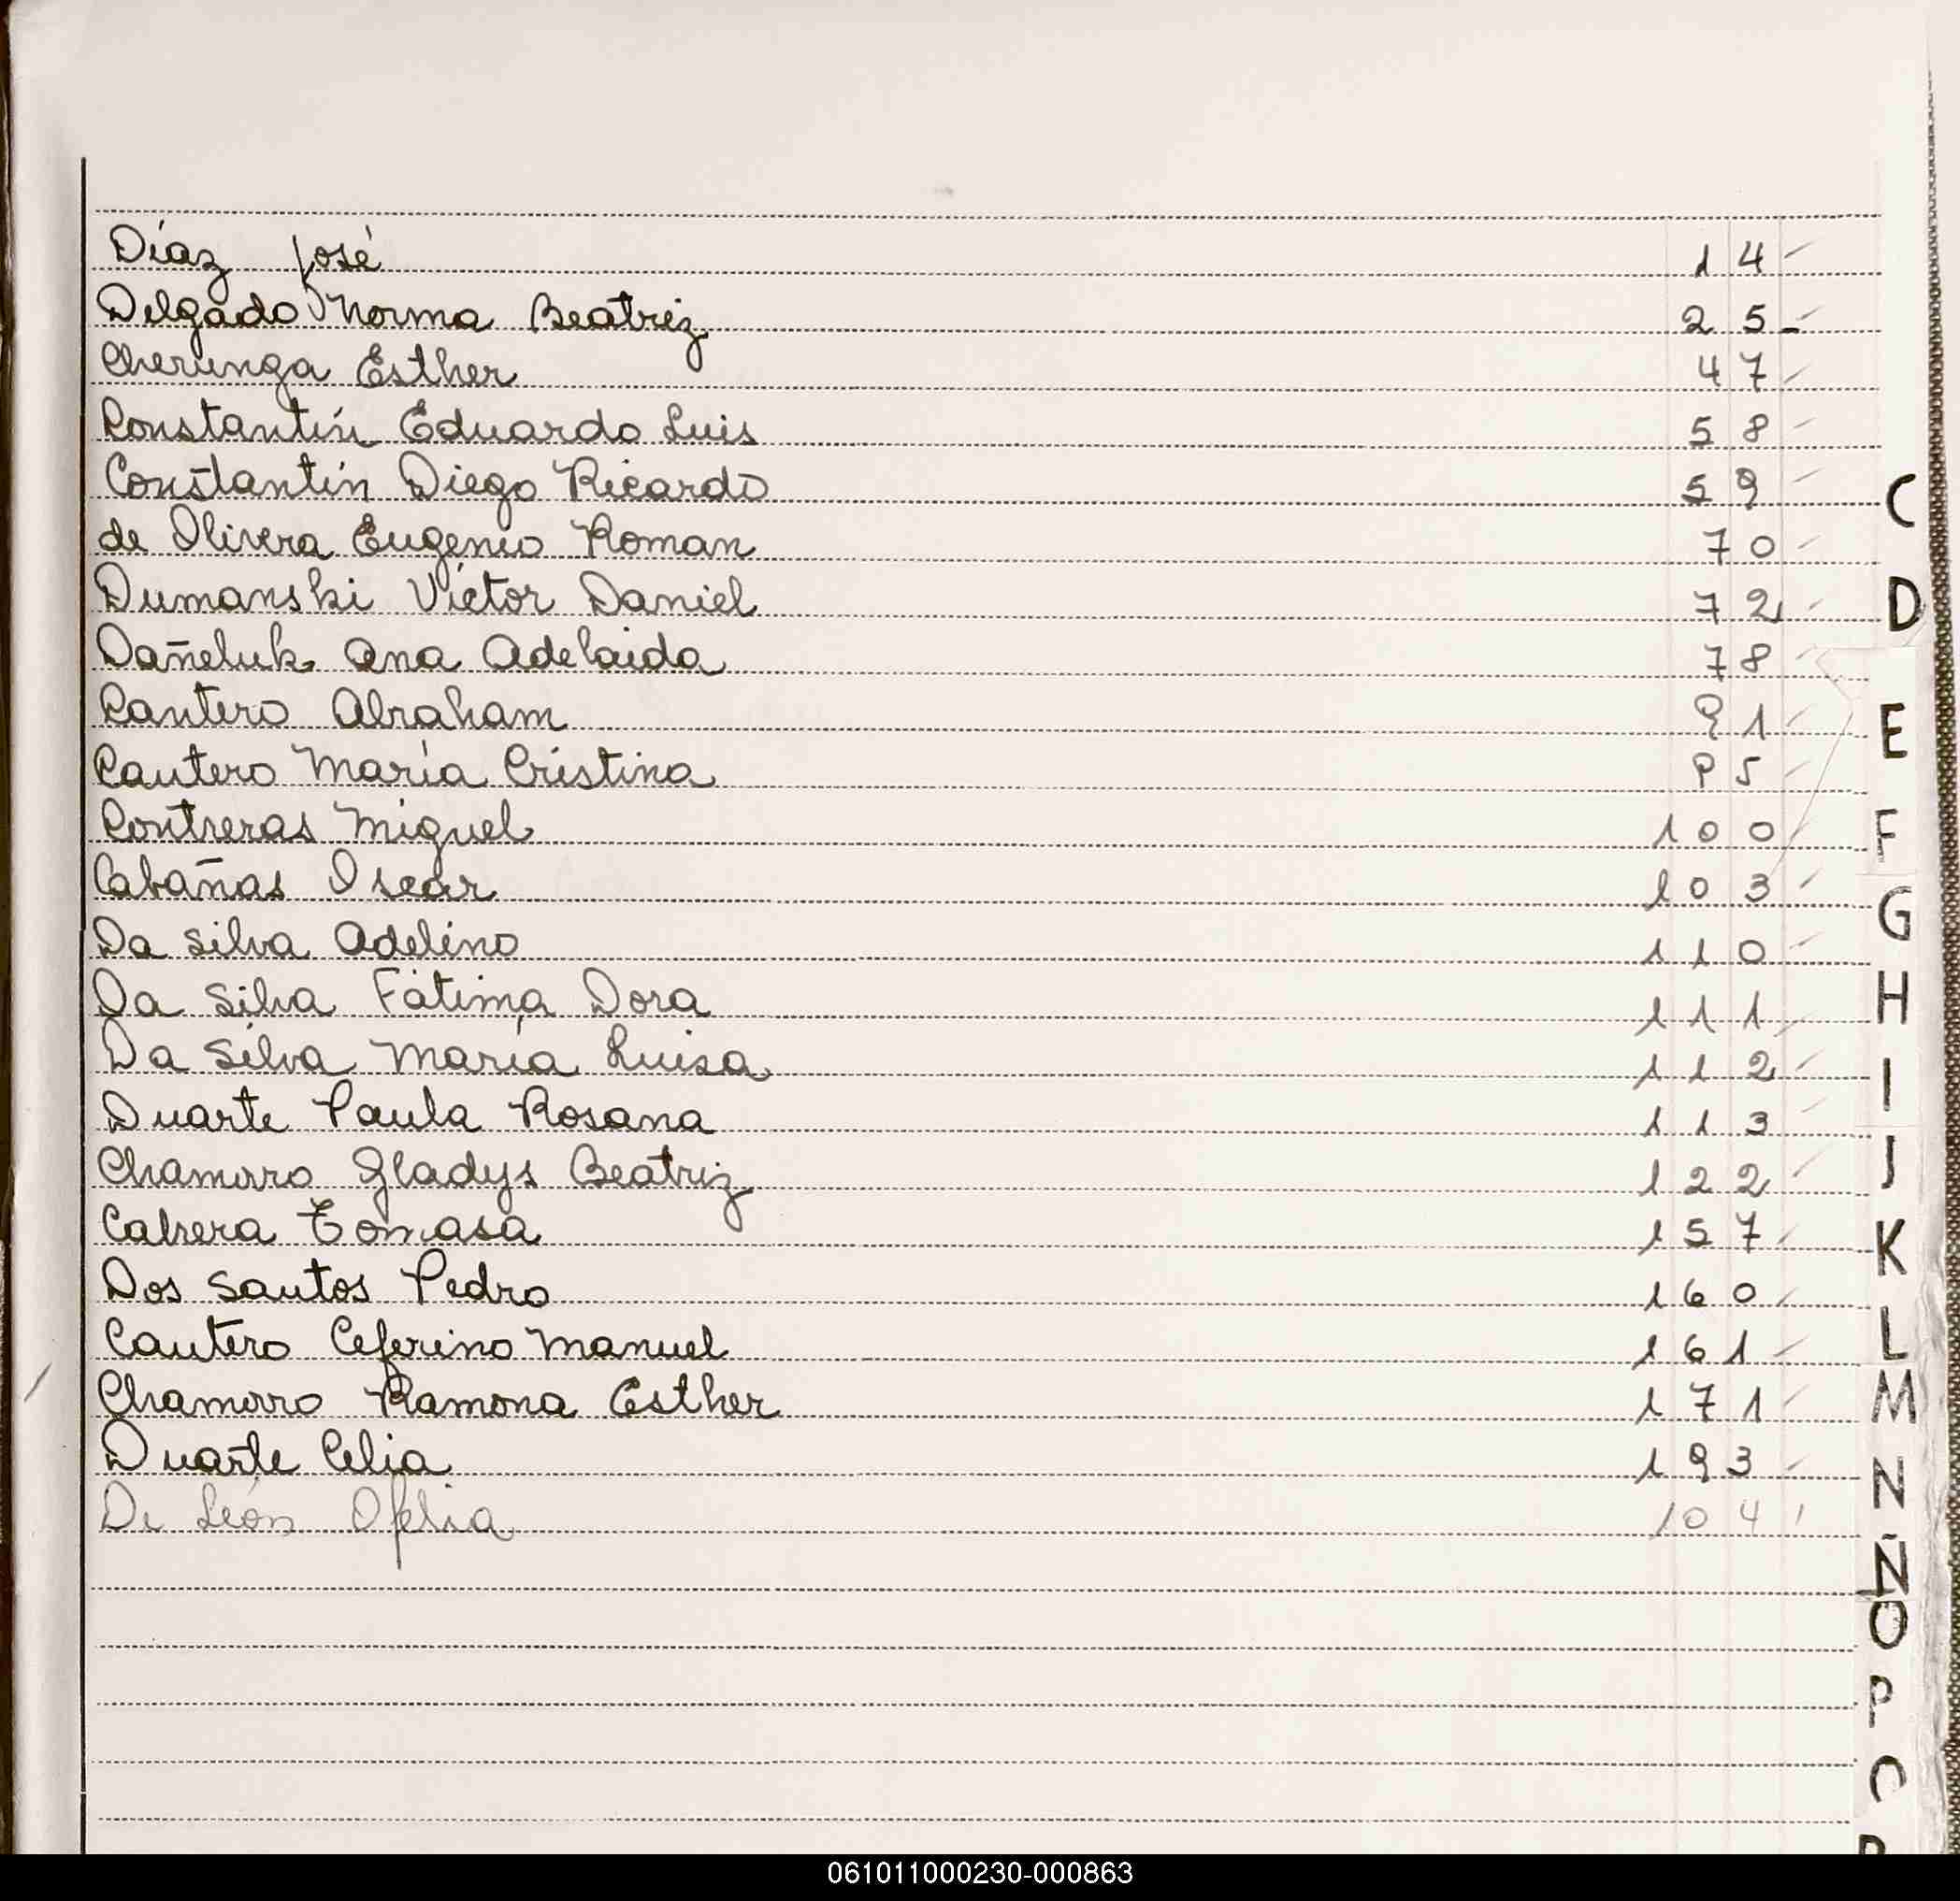 Díaz José 14
Delgado Norma Beatriz 25
Cherunga Esther 47
Constantín Eduardo Luis 58
Constantín Diego Ricardo 59
de Olivera Eugenio Roman 70
Dumanski Víctor Daniel 72
Dañeluk Ana Adelaida 78
Cantero Abraham 91
Cantero María Cristina 95
Contreras Miguel 100
Cabañas Oscar 103
Da Silva Adelino 110
Da Silva Fátima Dora 111
Da Silva María Luisa 112
Duarte Paula Rosana 113
Chamorro Gladys Beatriz 122
Cabrera Tomasa 157
Dos Santos Pedro 160
Cantero Ceferino Manuel 161
Chamorro Ramona Esther 171
Duarte Celia 193
De León Ofelia 104
C
D
E
F
G
H
I
J
K
L
M
N
Ñ
O
P
061011000230-000863